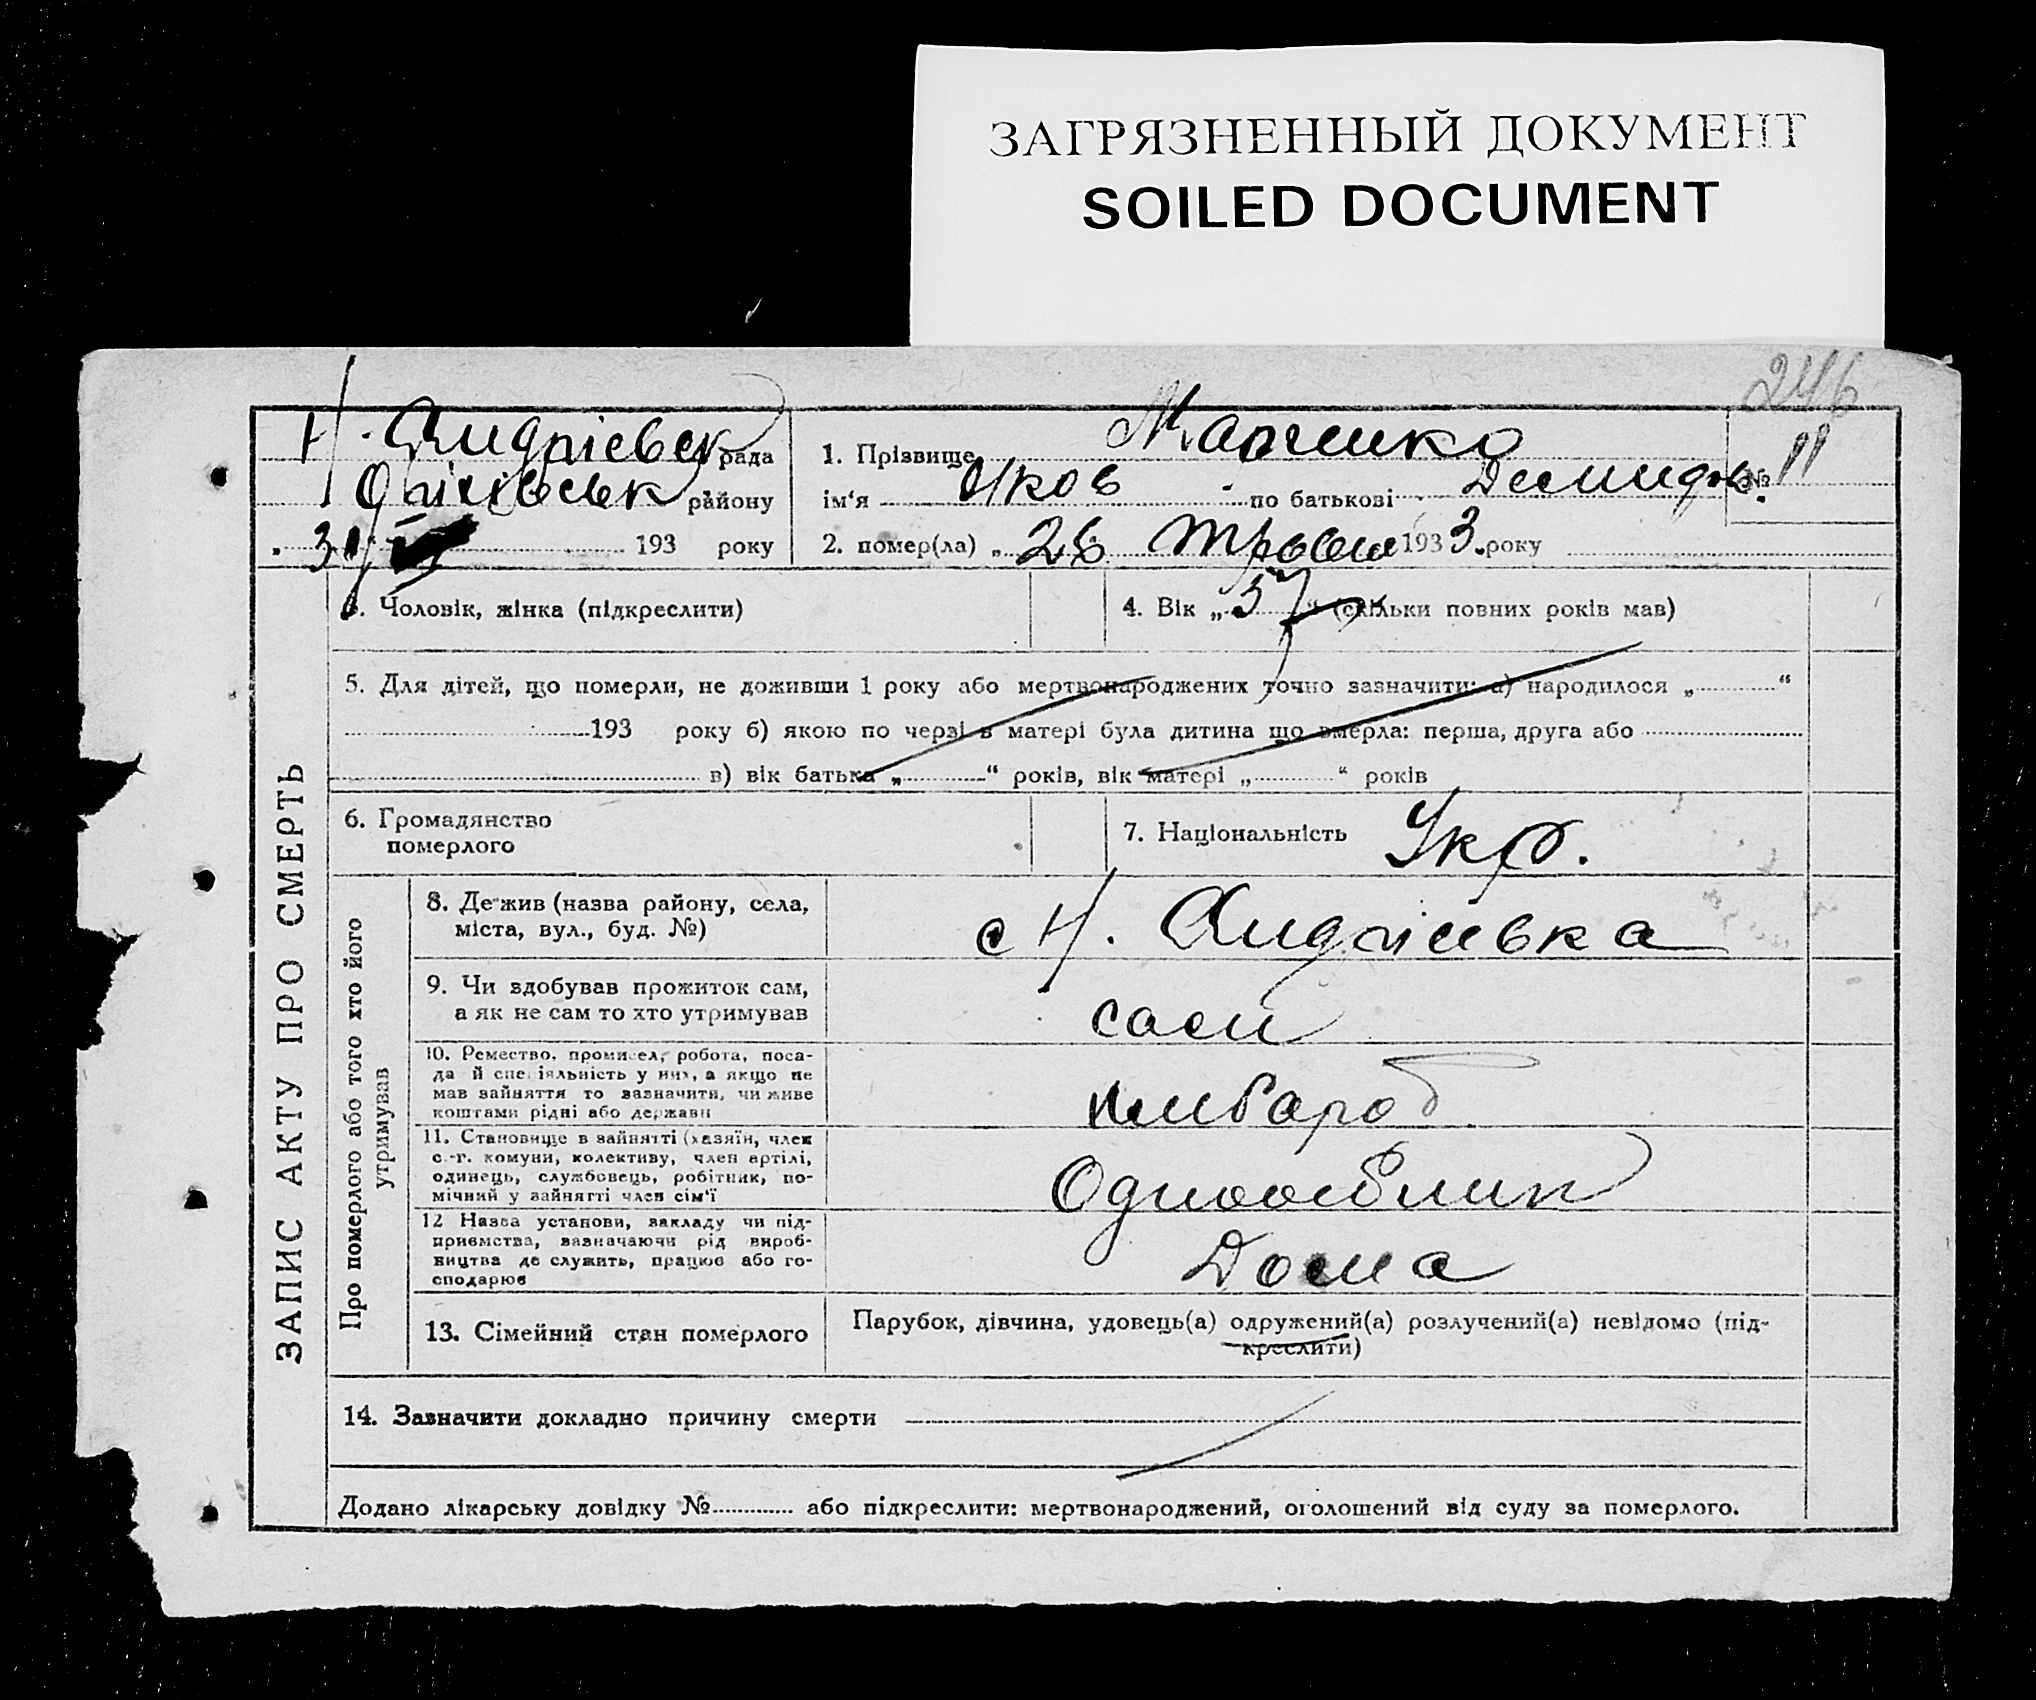 ЗАГРЯЗНЕННЫЙ ДОКУМЕНТ
SOILED DOCUMENT
246
Н. Андрієвськ рада
Оріхівськ району
193 року
1. Прізвище Марченко
ім'я Яков по батькові Демидов.
№ 11
2. помер(ла) „ 28 Травня 1933. року
ЗАПИС АКТУ ПРО СМЕРТЬ
3. Чоловік, жінка (підкреслити)
4. Вік „ 57 “ (скільки повних років мав)
5. Для дітей, що померли, не доживши 1 року або мертвонароджених точно зазначити: а) народилося „ “
193 року б) якою по черзі в матері була дитина що вмерла: перша, друга або
в) вік батька „ “ років, вік матері „ “ років
6. Громадянство
померлого
7. Національність Укр.
Про померлого або того хто його
утримував
8. Де-жив (назва району, села,
міста, вул., буд. №)
с Н. Андрієвка
9. Чи здобував прожиток сам,
а як не сам то хто утримував
сам
10. Ремество, промисел, робота, поса-
да й спеціяльність у них, а якщо не
мав зайняття то зазначити, чи живе
коштами рідні або держави
хлібороб
11. Становище в зайнятті (хазяїн, член
с.-г. комуни, колективу, член артілі,
одинець, службовець, робітник, по-
мічний у зайнятті член сім'ї
Одноосібник
12 Назва установи, закладу чи під-
приємства, зазначаючи рід вироб-
ництва де служить, працює або го-
сподарює
Дома
13. Сімейний стан померлого
Парубок, дівчина, удовець(а) одружений(а) розлучений(а) невідомо (під-
креслити)
14. Зазначити докладно причину смерти
Додано лікарську довідку № або підкреслити: мертвонароджений, оголошений від суду за померлого.